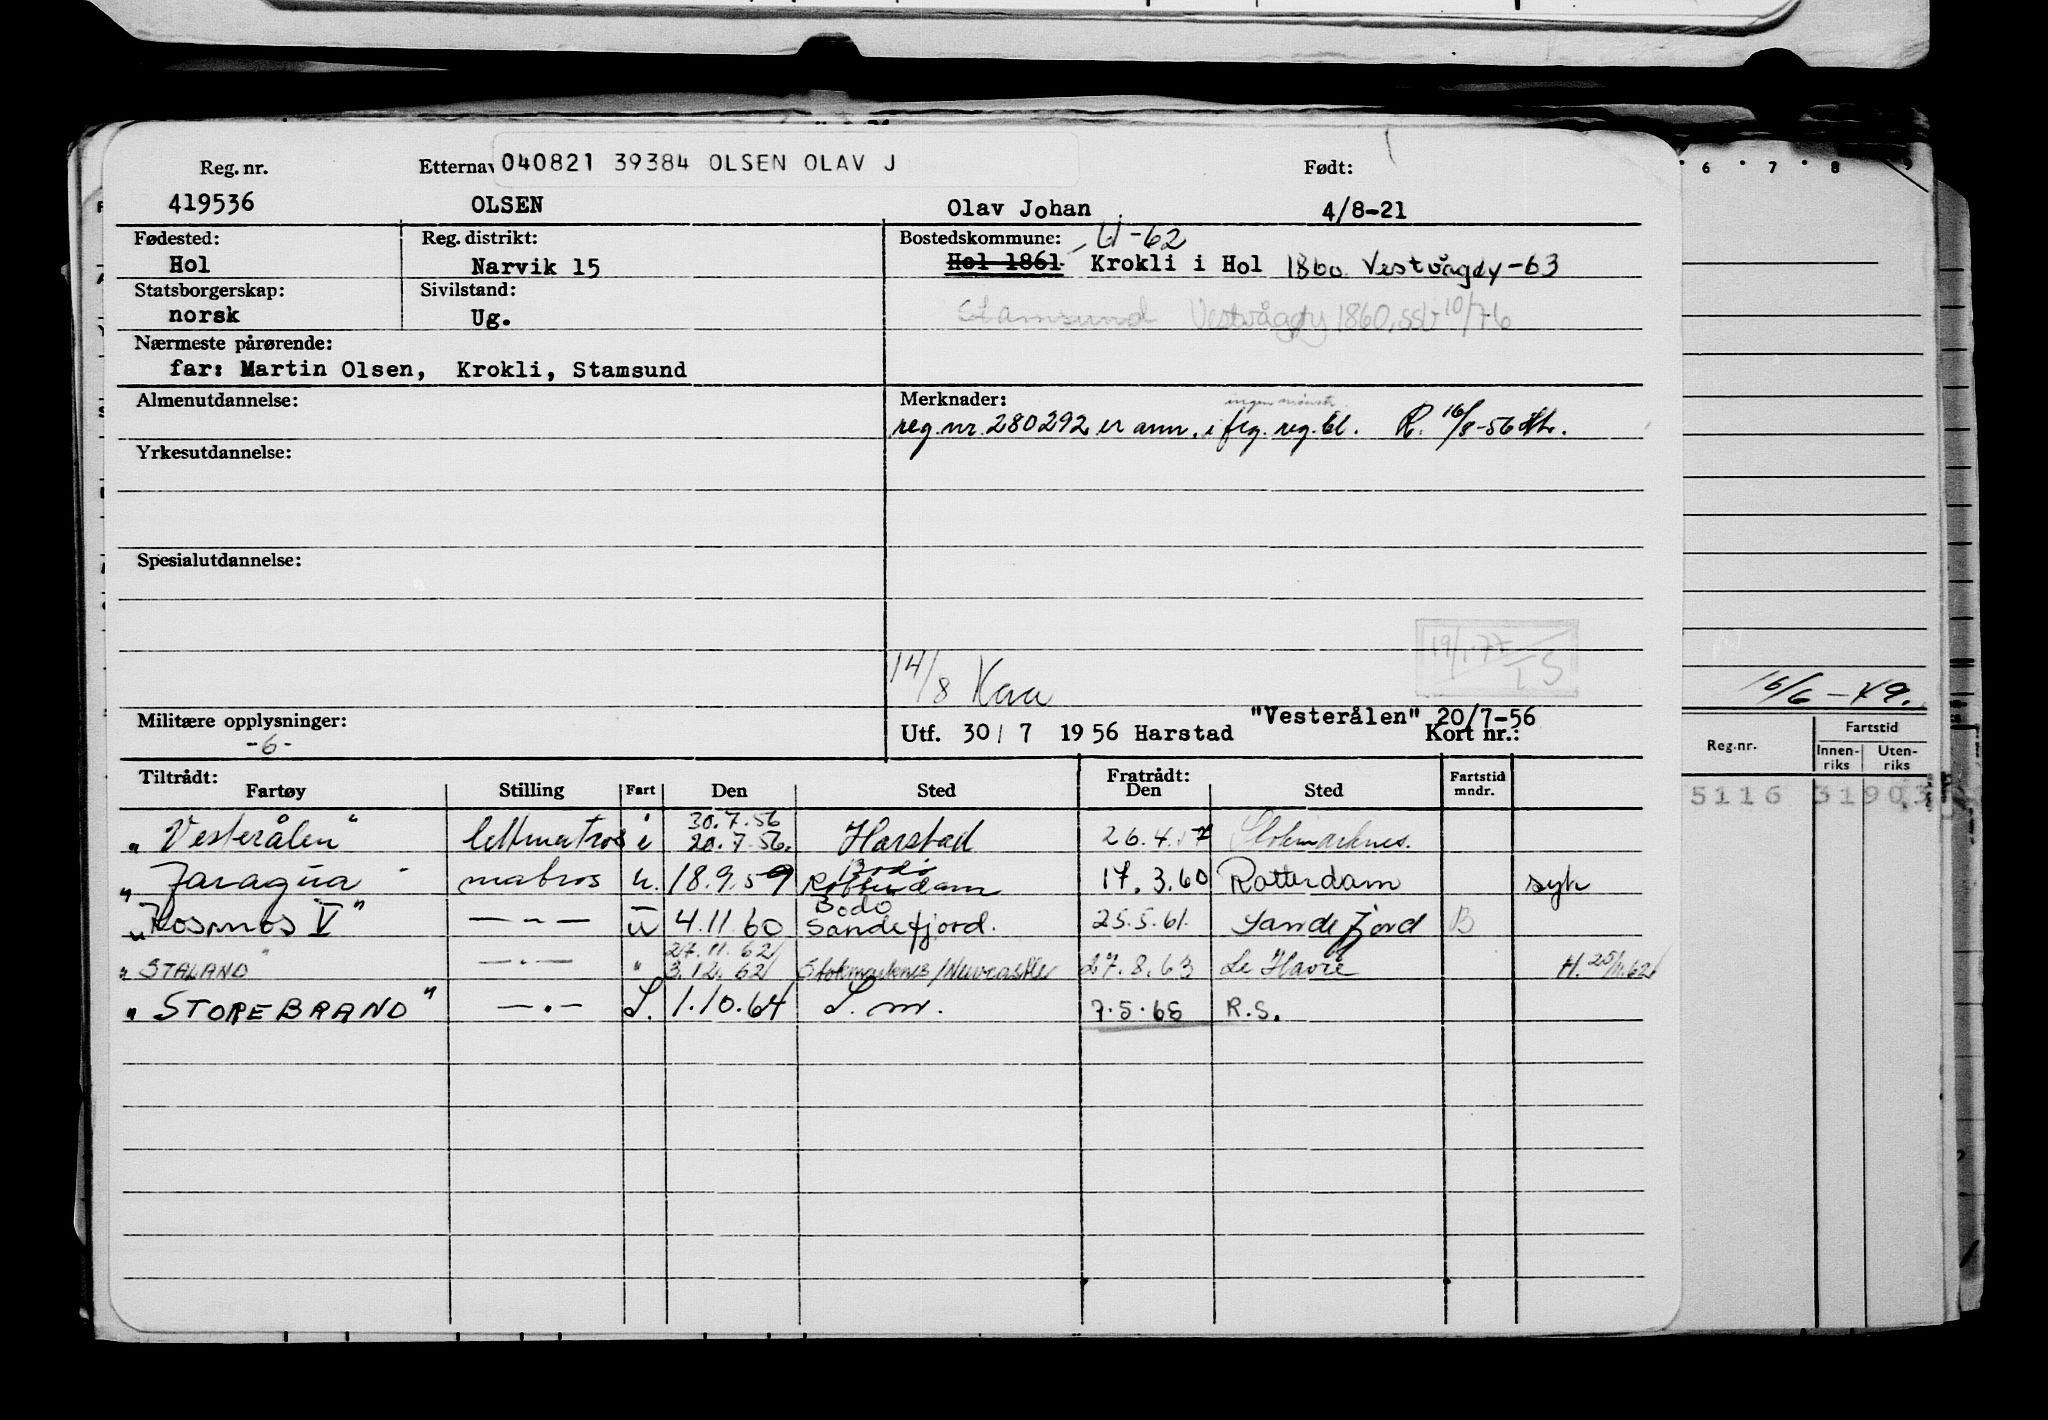 Reg. nr. Etternav 040821 39384 OLSEN OLAV J Født:
419536 OLSEN Olav Johan 4/8-21
Fødested: Reg. distrikt: Bostedskommune: U-62
Hol Narvik 15 Hol 1861 Krokli i Hol 1860 Vestvågøy-63
Statsborgerskap: Sivilstand:
norsk Ug. Stamsund Vestvågøy 1860, ssv 10/76
Nærmeste pårørende:
far: Martin Olsen, Krokli, Stamsund
Almenutdannelse: Merknader: ingen mønstr.
reg. nr. 280292 er ann. i flg. reg. bl. R. 16/8-56
Yrkesutdannelse:
Spesialutdannelse:
19/1-77
14/8
Militære opplysninger: "Vesterålen" 20/7-56
-6- Utf. 30/7 1956 Harstad Kort nr.:
Tiltrådt: Fratrådt:
Fartøy Stilling Fart Den Sted Den Sted Fartstid mndr.
30.7.56
"Vesterålen" lettmatros i 20.7.56. Harstad 26.4.57 Stokmarknes.
Bodø
"Jaragua" matros u. 18.9.59 Rotterdam 17.3.60 Rotterdam syk
Bodø
"Kosmos V" — " — u 4.11.60 Sandefjord. 25.5.61. Sandefjord B
27.11.62
"STALAND" — " — " 3.12.62 Stokmarknes/Newcastle 27.8.63 Le Havre H. 25/11.62
"STOREBRAND" — " — S. 1.10.64 S. m. 7.5.65 R.S.
6 7 8 9
16/6-49.
Reg.nr. Fartstid
Innenriks Utenriks
5116 31903